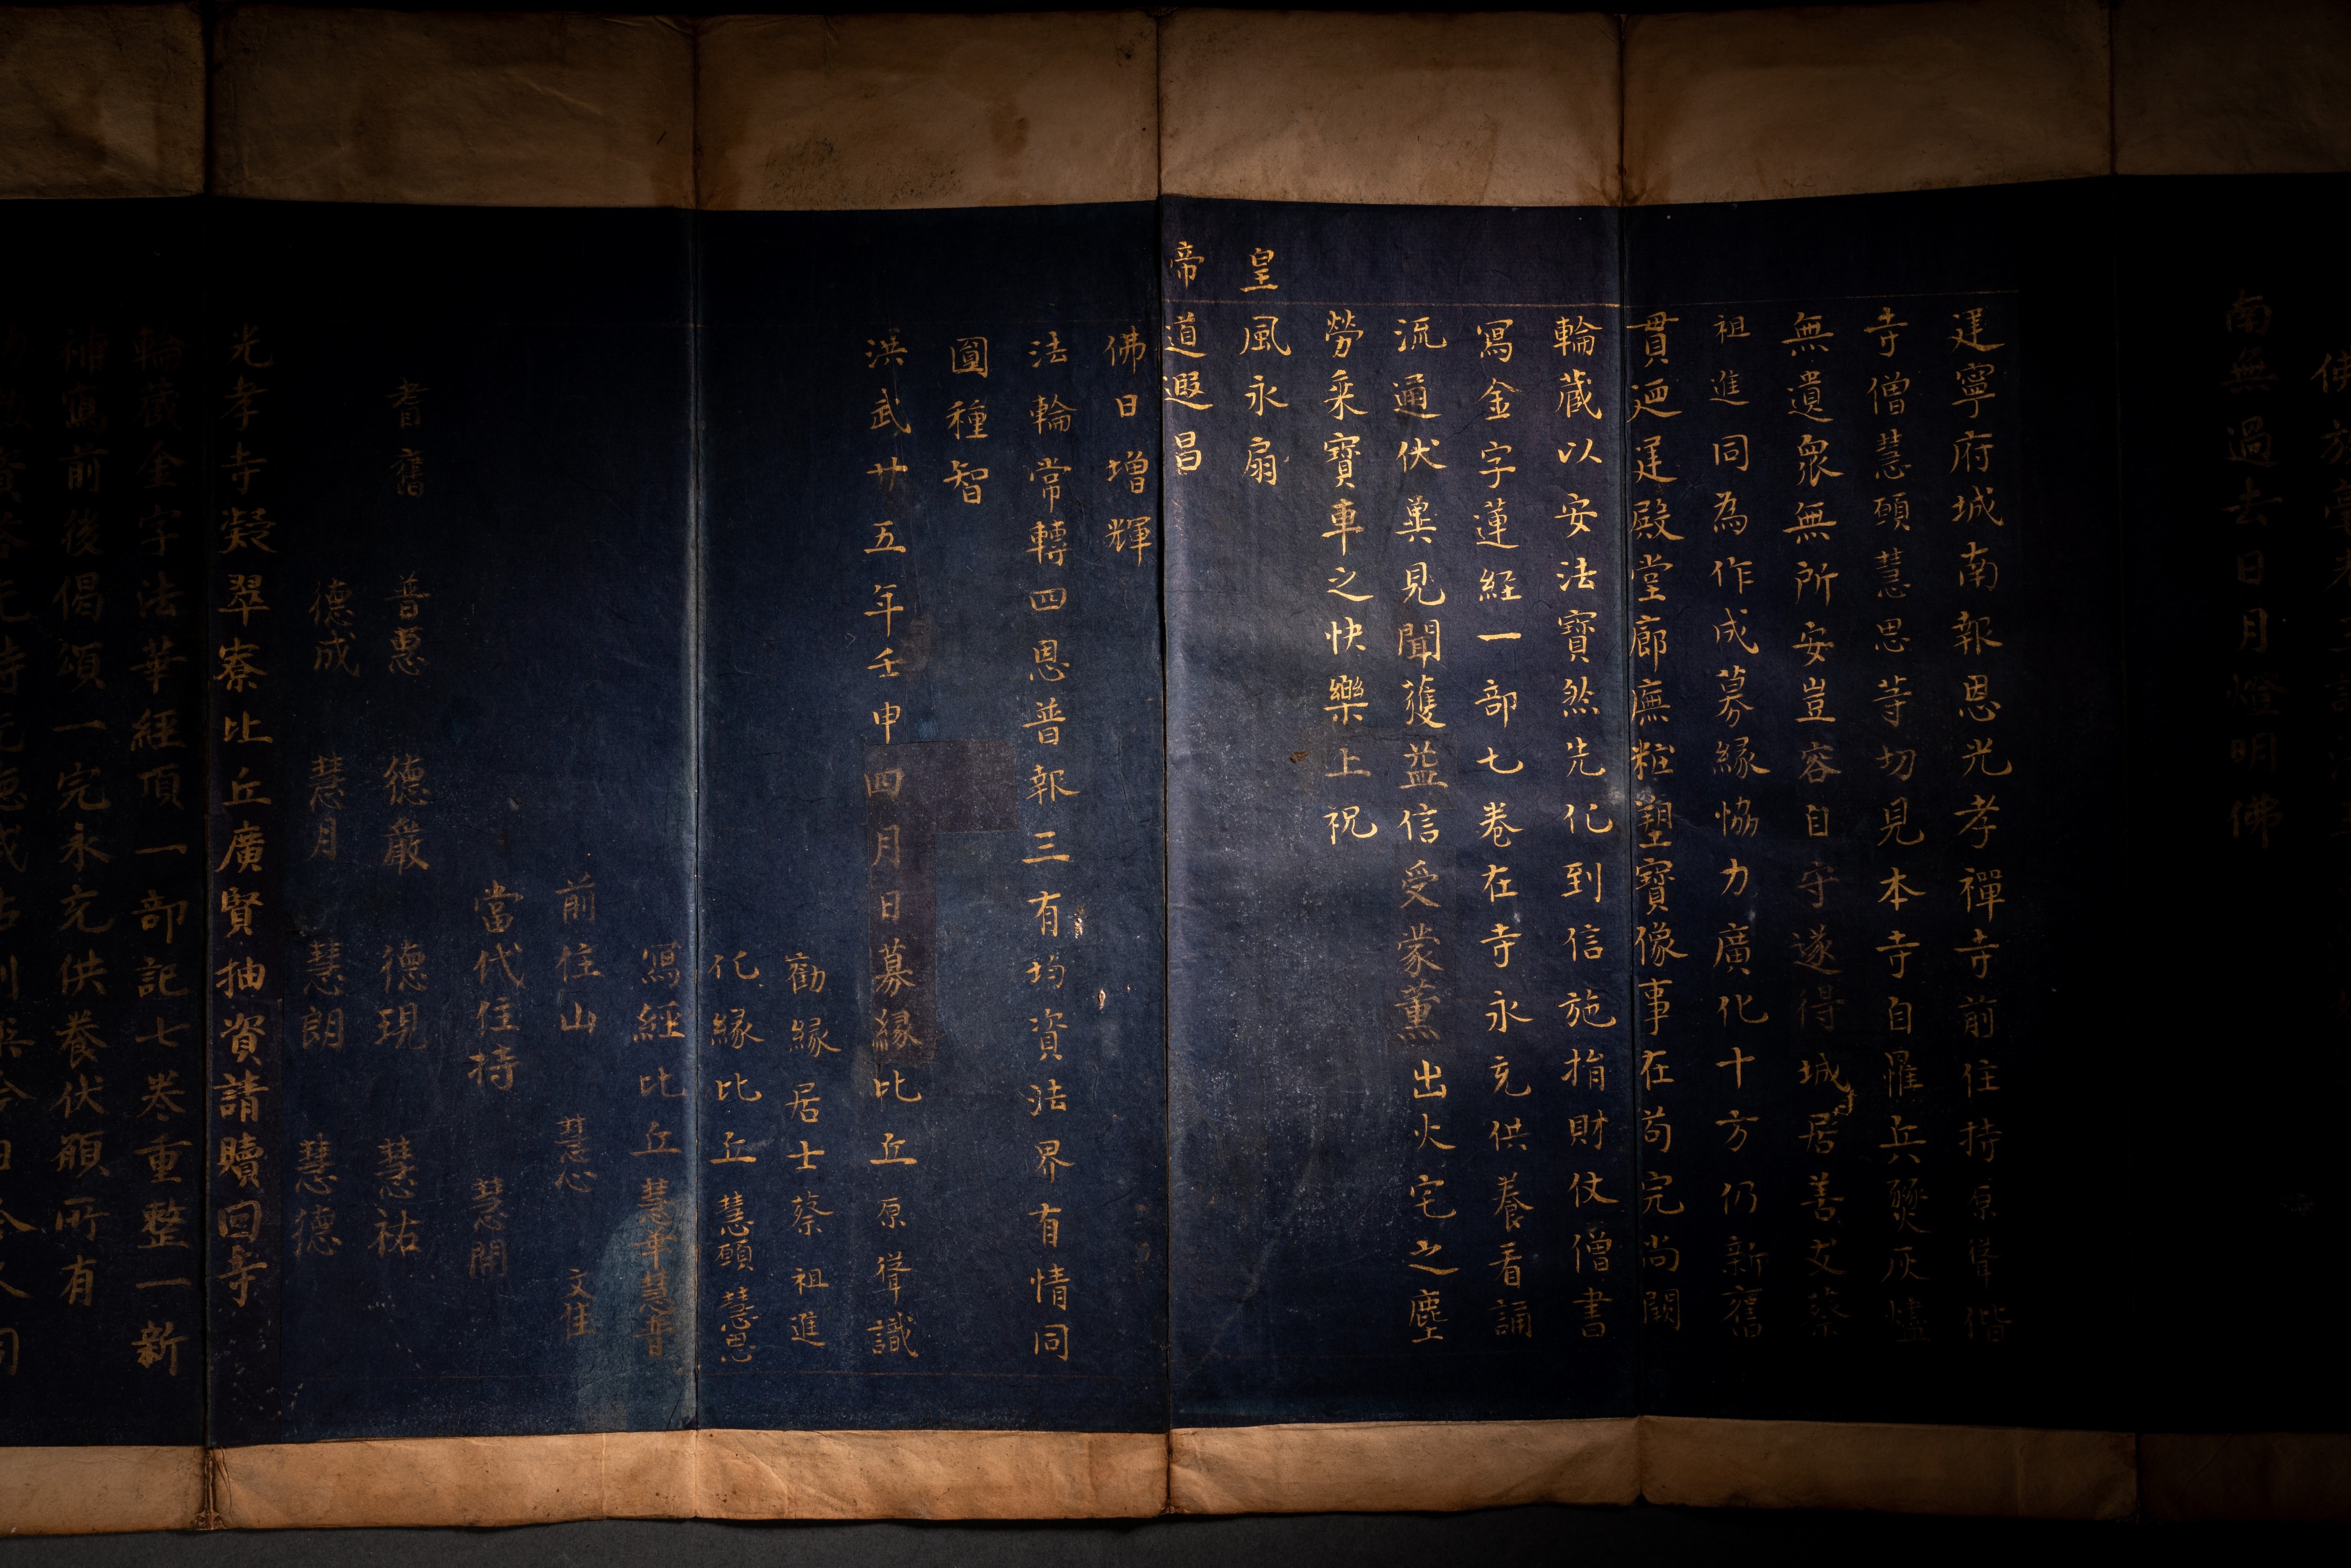 南無過去日月燈明佛
建寧府城南報恩光孝禪寺前住持原聳偕
寺僧慧願慧思等切見本寺自罹兵燹灰燼
無遺衆無所安豈容自守遂得城居善友蔡
祖進同為作成募緣恊力廣化十方仍新舊
貫迊建殿堂廊廡粧塑寶像事在苟完尚闕
輪藏以安法寶然先化到信施捐財仗僧書
寫金字蓮經一部七卷在寺永充供養看誦
流通伏兾見聞獲益信受蒙薰出火宅之塵
勞乗寶車之快樂上祝
皇風永扇
帝道遐昌
佛日增輝
法輪常轉四恩普報三有均資法界有情同
圓種智
洪武廿五年壬申四月日募緣比丘原聳識
勸緣居士蔡祖進
化緣比丘慧願慧思
寫經比丘慧幸慧晋
前住山慧心文隹
當代住持慧開
耆舊普惠德嚴德現慧祐
德成慧月慧朗慧德
光孝寺凝翠寮比丘廣賢抽資請贖回寺
輪藏金字法華經頂一部記七卷重整一新
補寫前後偈頌一完永充供養伏願所有